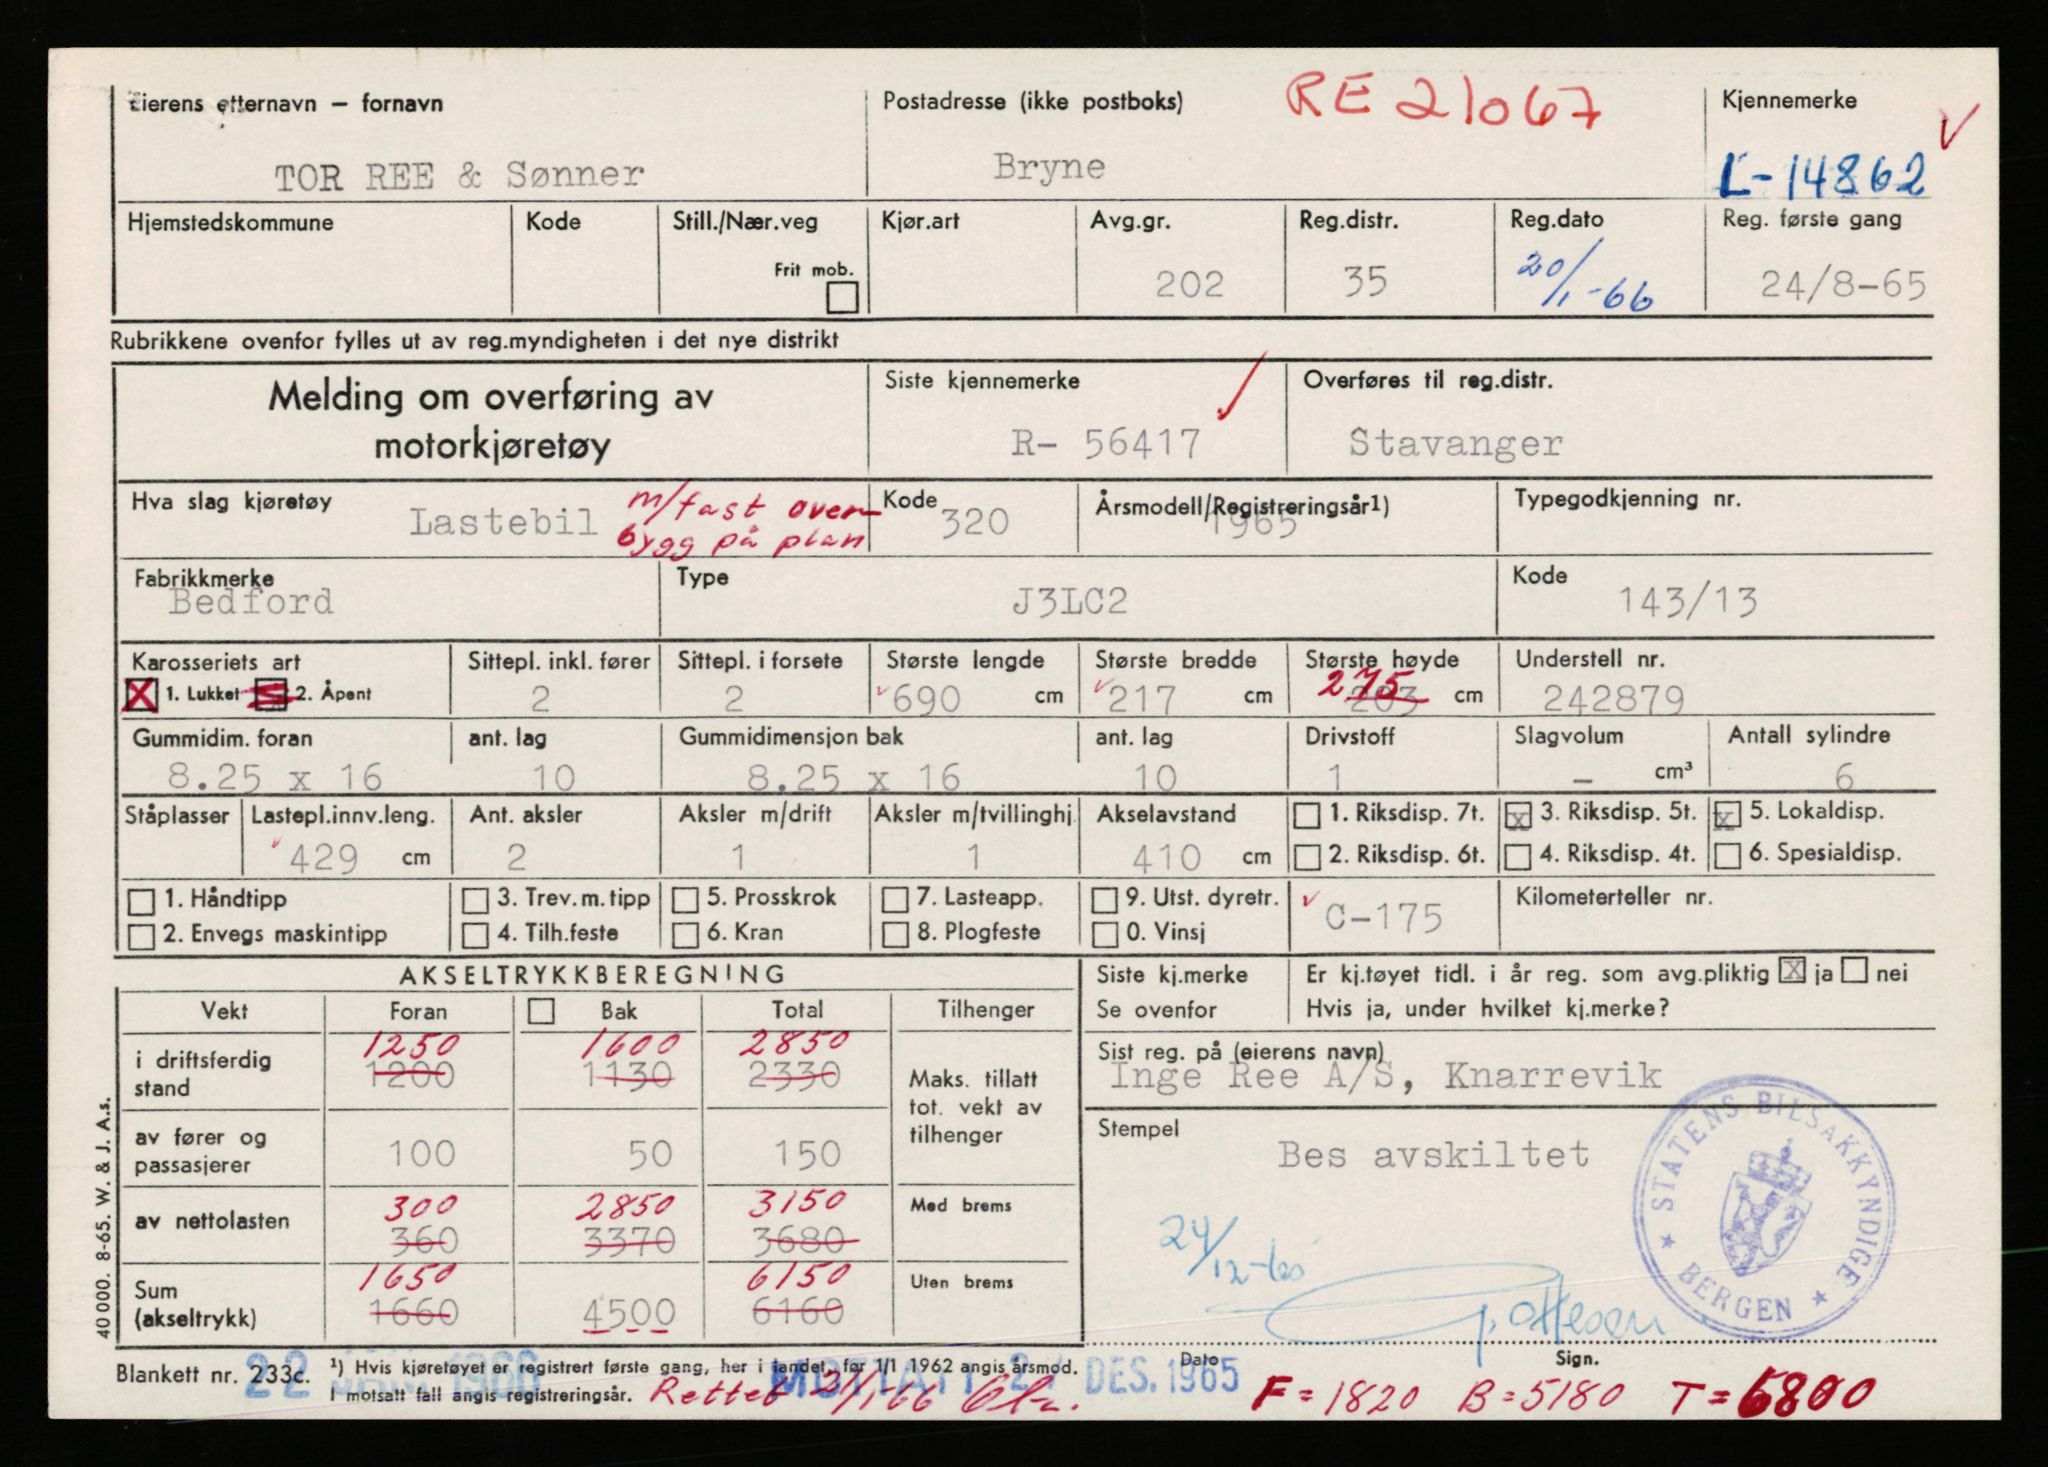 Eierens etternavn – fornavn
TOR REE & Sønner
Postadresse (ikke postboks)
RE 21067
Bryne
Kjennemerke
L-14862
Hjemstedskommune
Kode
Still./Nær.veg
Frit mob.
Kjør.art
Avg.gr.
202
Reg.distr.
35
Reg.dato
20/1-66
Reg. første gang
24/8-65
Rubrikkene ovenfor fylles ut av reg.myndigheten i det nye distrikt
Melding om overføring av
motorkjøretøy
Siste kjennemerke
R- 56417
Overføres til reg.distr.
Stavanger
Hva slag kjøretøy
Lastebil
m/fast over-
bygg på plan
Kode
320
Årsmodell/Registreringsår1)
1965
Typegodkjenning nr.
Fabrikkmerke
Bedford
Type
J3LC2
Kode
143/13
Karosseriets art
X 1. Lukket 2. Åpent
Sittepl. inkl. fører
2
Sittepl. i forsete
2
Største lengde
690 cm
Største bredde
217 cm
Største høyde
275
203 cm
Understell nr.
242879
Gummidim. foran
8.25 x 16
ant. lag
10
Gummidimensjon bak
8.25 x 16
ant. lag
10
Drivstoff
1
Slagvolum
- cm³
Antall sylindre
6
Ståplasser
Lastepl.innv.leng.
429 cm
Ant. aksler
2
Aksler m/drift
1
Aksler m/tvillinghj.
1
Akselavstand
410 cm
1. Riksdisp. 7t.
2. Riksdisp. 6t.
x 3. Riksdisp. 5t.
4. Riksdisp. 4t.
x 5. Lokaldisp.
6. Spesialdisp.
1. Håndtipp
2. Envegs maskintipp
3. Trev. m. tipp
4. Tilh.feste
5. Prosskrok
6. Kran
7. Lasteapp.
8. Plogfeste
9. Utst. dyretr.
0. Vinsj
C-175
Kilometerteller nr.
AKSELTRYKKBEREGNING
Vekt Foran Bak Total Tilhenger
1250 1600 2850
i driftsferdig
stand
1200 1130 2330
av fører og
passasjerer
100 50 150
Maks. tillatt
tot. vekt av
tilhenger
300 2850 3150
av nettolasten
360 3370 3680
Med brems
1650 6150
Sum
(akseltrykk)
1660 4500 6160
Uten brems
Siste kj.merke
Se ovenfor
Er kj.tøyet tidl. i år reg. som avg.pliktig X ja nei
Hvis ja, under hvilket kj.merke?
Sist reg. på (eierens navn)
Inge Ree A/S, Knarrevik
Stempel
Bes avskiltet
STATENS BILSAKKYNDIGE
BERGEN
24/12-65
J. Ottesen
Dato
Sign.
40 000. 8-65. W. & J. A.s.
Blankett nr. 233c.
1) Hvis kjøretøyet er registrert første gang, her i landet, før 1/1 1962 angis årsmod.
I motsatt fall angis registreringsår.
22 JAN. 1966
MOTTATT DES. 1965
Rettet 21/1-66
F = 1820 B = 5180 T = 6800